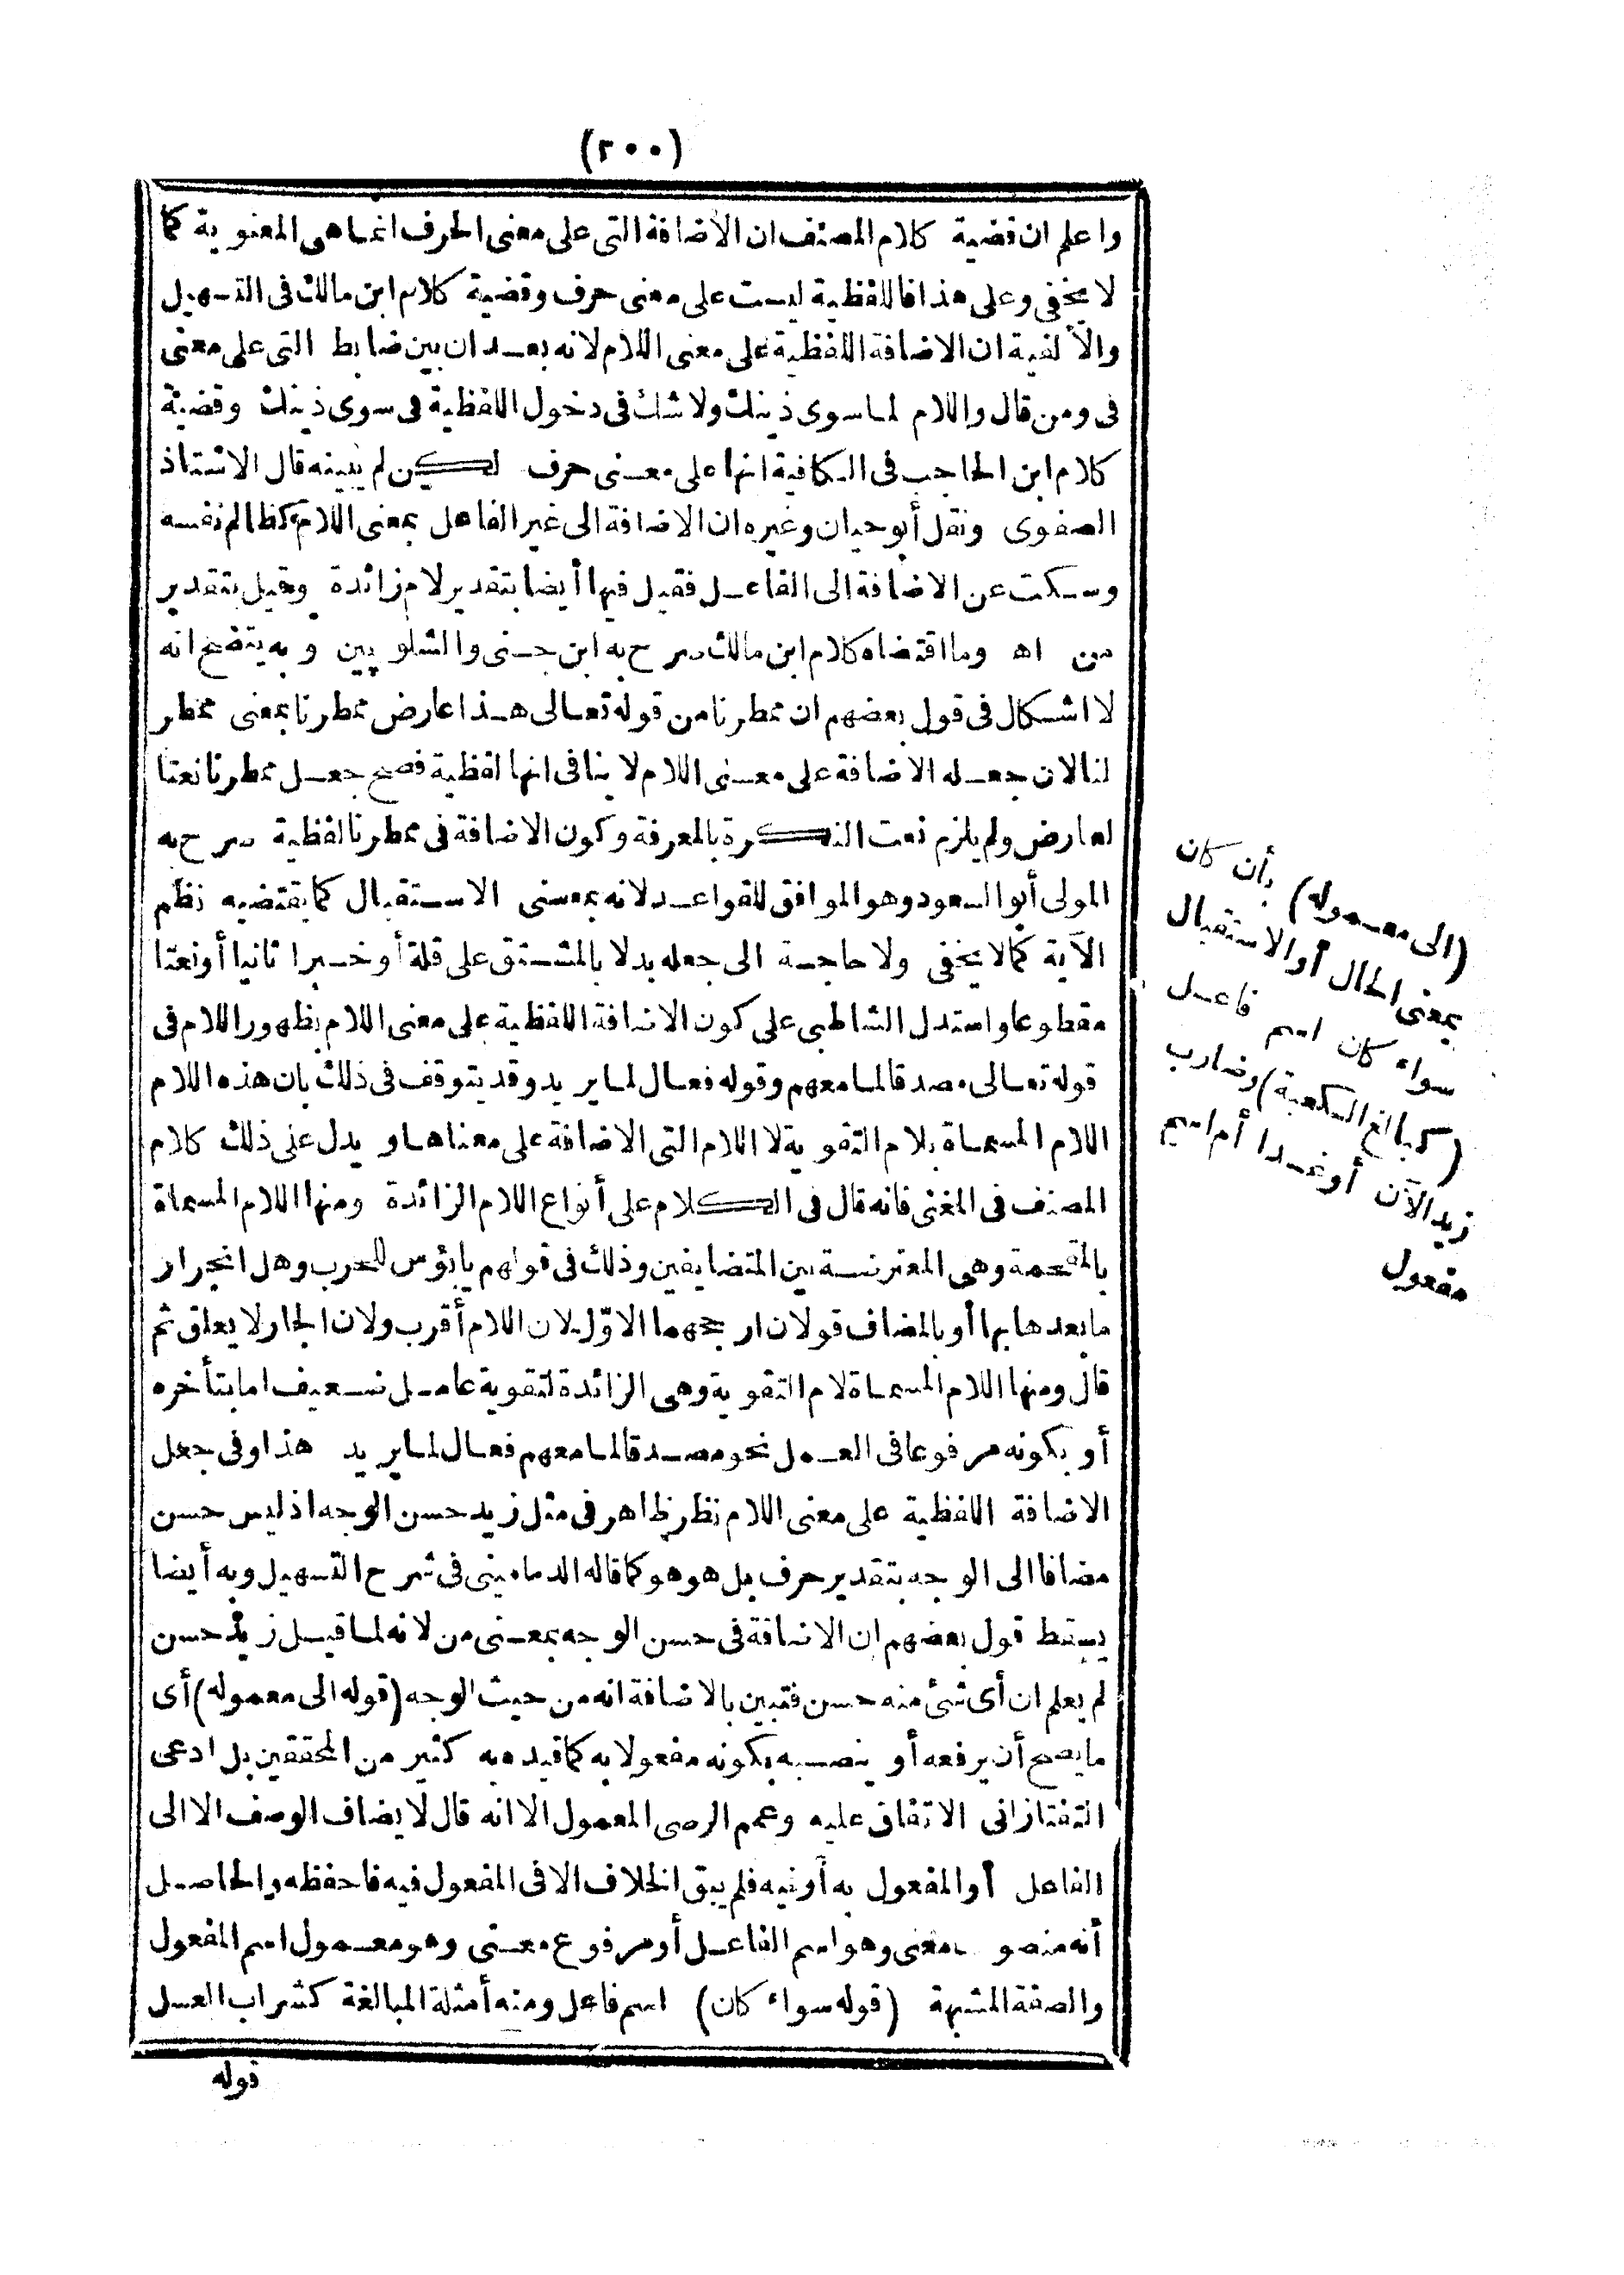 (٢٠٠)
واعلم ان قضية كلام المصنف ان الاضافة التى على معنى الحرف انما هى المعنوية كما
لا يخفى وعلى هذا فاللفظية ليست على معنى حرف وقضية كلام ابن مالك فى التسهيل
والألفية ان الاضافة اللفظية على معنى اللام لانه بعد ان بين ضابط التى على معنى
فى ومن قال واللام لما سوى ذينك ولا شك فى دخول اللفظية فى سوى ذينك وقضية
كلام ابن الحاجب فى الكافية انها على معنى حرف لكن لم يبينه قال الاستاذ
الصفوى ونقل أبو حيان وغيره ان الاضافة الى غير الفاعل بمعنى اللام كظالم نفسه
وسكت عن الاضافة الى الفاعل فقيل فيها أيضا بتقدير لام زائدة وقيل بتقدير
من اه وما اقتضاه كلام ابن مالك صرح به ابن جنى والشلوبين وبه يتضح انه
لا اشكال فى قول بعضهم ان ممطرنا من قوله تعالى هذا عارض ممطرنا بمعنى ممطر
لنا لان جعله الاضافة على معنى اللام لا ينافى انها لفظية فصح جعل ممطرنا نعتا
لعارض ولم يلزم نعت النكرة بالمعرفة وكون الاضافة فى ممطرنا لفظية صرح به
المولى أبو السعود وهو الموافق للقواعد لانه بمعنى الاستقبال كما يقتضيه نظم
الآية كما لا يخفى ولا حاجة الى جعله بدلا بالمشتق على قلة أو خبرا ثانيا أو نعتا
مقطوعا واستدل الشاطبى على كون الاضافة اللفظية على معنى اللام بظهور اللام فى
قوله تعالى مصدقا لما معهم وقوله فعال لما يريد وقد يتوقف فى ذلك بان هذه اللام
اللام المسماة بلام التقوية لا اللام التى الاضافة على معناها ويدل على ذلك كلام
المصنف فى المغنى فانه قال فى الكلام على أنواع اللام الزائدة ومنها اللام المسماة
بالمقحمة وهى المعترضة بين المتضايفين وذلك فى قولهم يا بؤس للحرب وهل انجرار
ما بعدها بها أو بالمضاف قولان ارجحهما الاوّل لان اللام أقرب ولان الجار لا يعلق ثم
قال ومنها اللام المسماة لام التقوية وهى الزائدة لتقوية عامل ضعيف اما بتأخره
أو بكونه مرفوعا فى العمل نحو مصدقا لما معهم فعال لما يريد هذا وفى جعل
الاضافة اللفظية على معنى اللام نظر ظاهر فى مثل زيد حسن الوجه اذ ليس حسن
مضافا الى الوجه بتقدير حرف بل هو هو كما قاله الدمامينى فى شرح التسهيل وبه أيضا
يسقط قول بعضهم ان الاضافة فى حسن الوجه بمعنى من لانه لما قيل زيد حسن
لم يعلم ان أى شئ منه حسن فتبين بالاضافة انه من حيث الوجه (قوله الى معموله) أى
ما يصح أن يرفعه أو ينصبه بكونه مفعولا به كما قيده به كثير من المحققين بل ادعى
التفتازانى الاتفاق عليه وعمم الرضى المعمول الا انه قال لا يضاف الوصف الا الى
الفاعل أو المفعول به أو فيه فلم يبق الخلاف الا فى المفعول فيه فاحفظه والحاصل
أنه منصو معنى وهو اسم الفاعل أو مرفوع معنى وهو معمول اسم المفعول
والصفة المشبهة (قوله سواء كان) اسم فاعل ومنه أمثلة المبالغة كشراب العسل
قوله
(الى معموله) بأن كان
بمعنى الحال أو الاستقبال
سواء كان اسم فاعل
(كبالغ الكعبة) وضارب
زيد الآن أو غدا أم اسم
مفعول